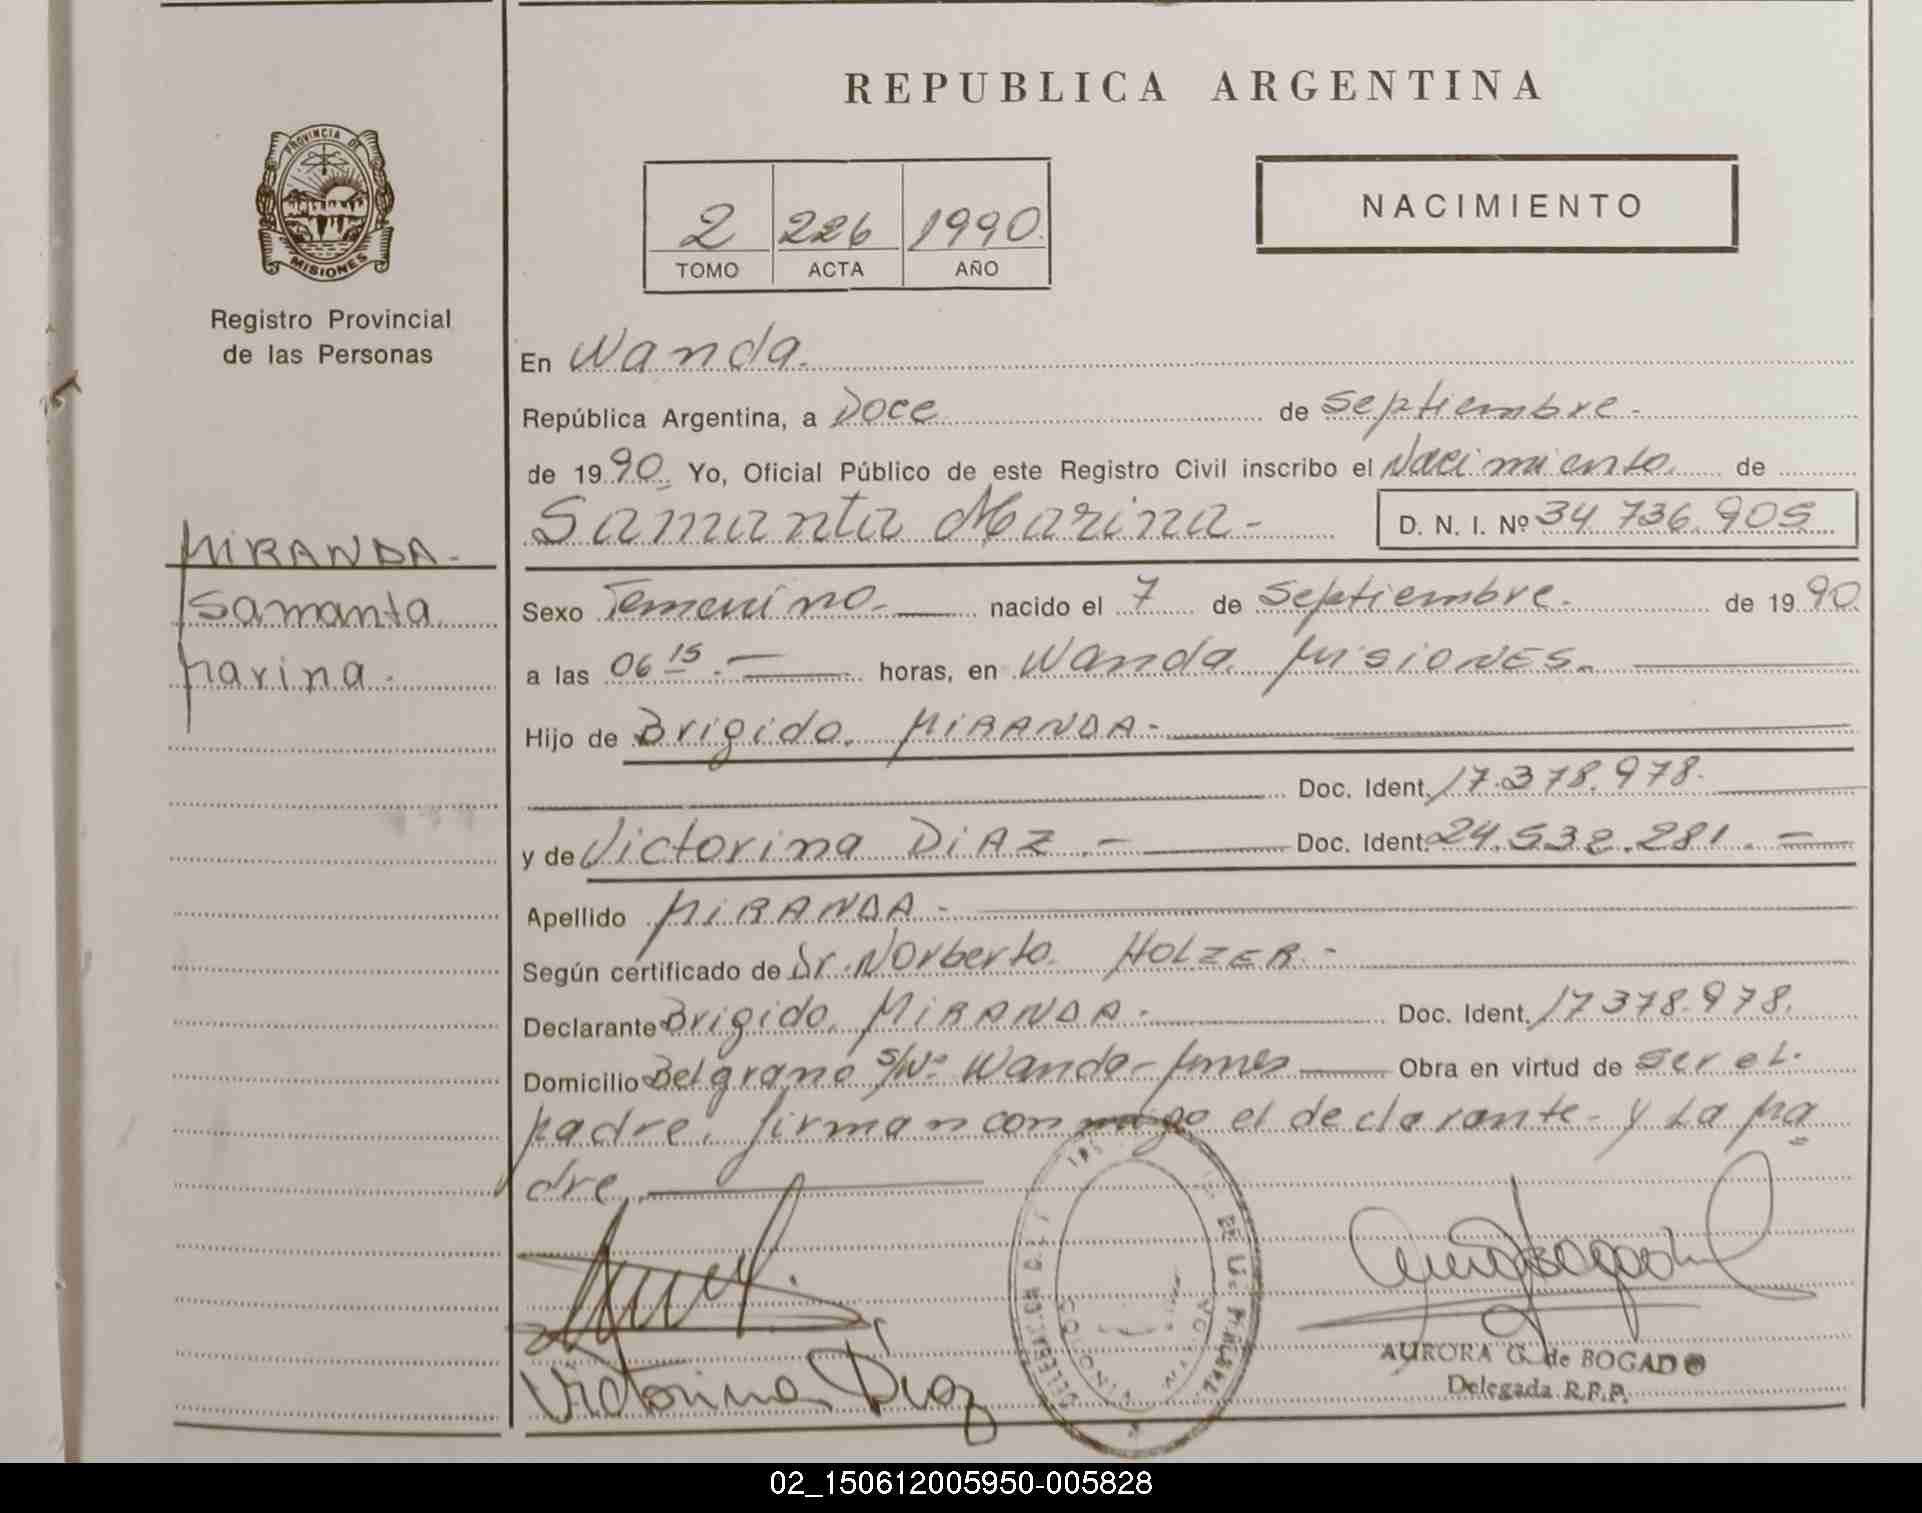 REPUBLICA ARGENTINA
PROVINCIA DE
MISIONES
Registro Provincial
de las Personas
2 226 1990
TOMO ACTA AÑO
NACIMIENTO
MIRANDA-
Samanta
Marina.
En Wanda.
República Argentina, a Doce de Septiembre-
de 1990. Yo, Oficial Público de este Registro Civil inscribo el Nacimiento de
Samanta Marina- D. N. I. Nº 34 736.905
Sexo Femenino.— nacido el 7 de Septiembre. de 1990
a las 06 15.— horas, en Wanda Misiones.
Hijo de Brigido. MIRANDA-
Doc. Ident. 17.378.978.
y de Victorina DIAZ.- Doc. Ident. 24.532.281.-
Apellido MIRANDA-
Según certificado de Dr. Norberto HOLZER-
Declarante Brigido MIRANDA- Doc. Ident. 17378.978.
Domicilio Belgrano s/Nº Wanda- Obra en virtud de ser el
padre. firman conmigo el declarante- y La ma
dre
Victorina Diaz
AURORA G. de BOGADO
Delegada R.P.P.
02_150612005950-005828